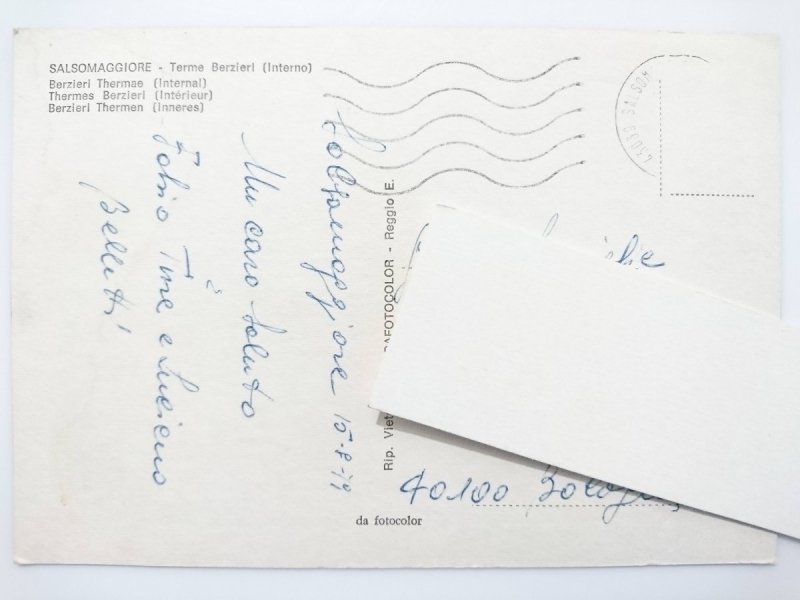 SALSOMAGGIORE - Terme Berzieri (Interno)
Berzieri Thermae (Internal)
Thermes Berzieri (Intérieur)
Berzieri Thermen (Inneres)
Salsomaggiore 15-8-79
Un caro saluto
Fabio Tina e Luciano
Belletti
FOTOCOLOR - Reggio E.
Rip. Viet
43039 SALSOM
40100 Bologna
da fotocolor